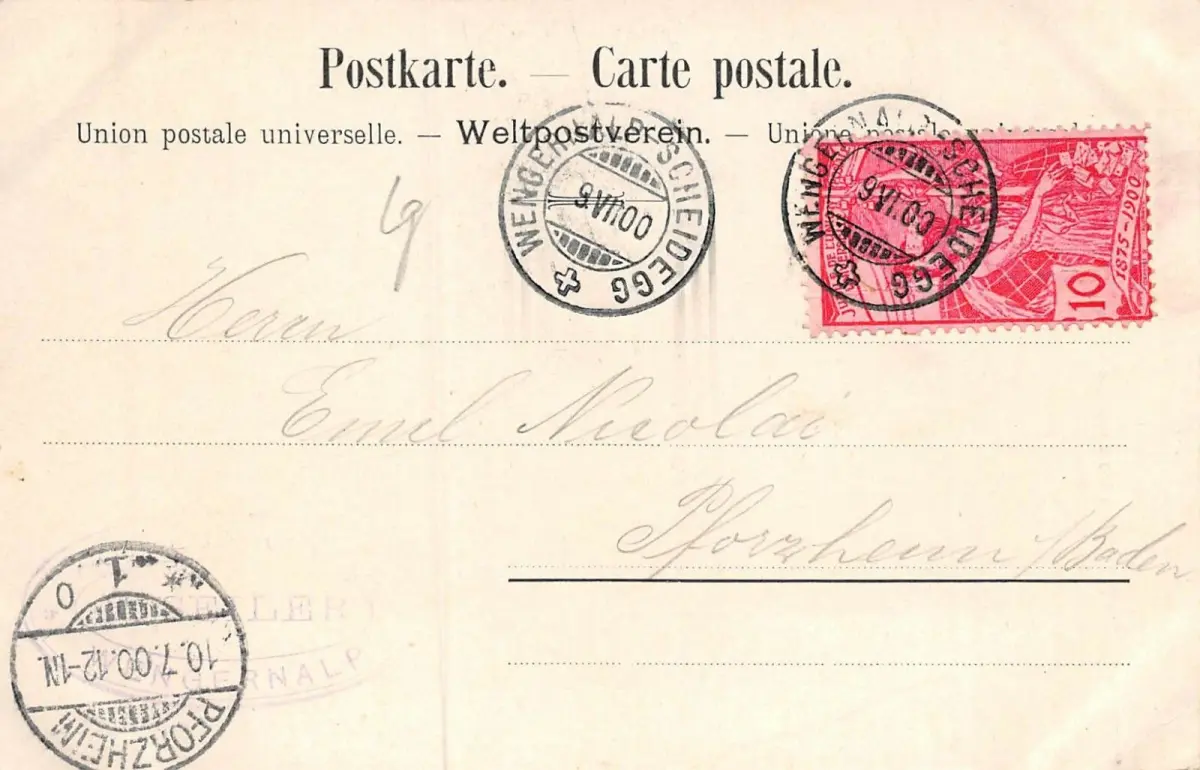 Postkarte. — Carte postale.
Union postale universelle. — Weltpostverein. — Unione postale universale.
WENGERNALP-SCHEIDEGG
9.VII.00
WENGERNALP-SCHEIDEGG
9.VII.00
1875-1900
10
Herrn
Emil Nicolai
Pforzheim / Baden
PFORZHEIM
10.7.00.12-1N.
1.
WENGERNALP